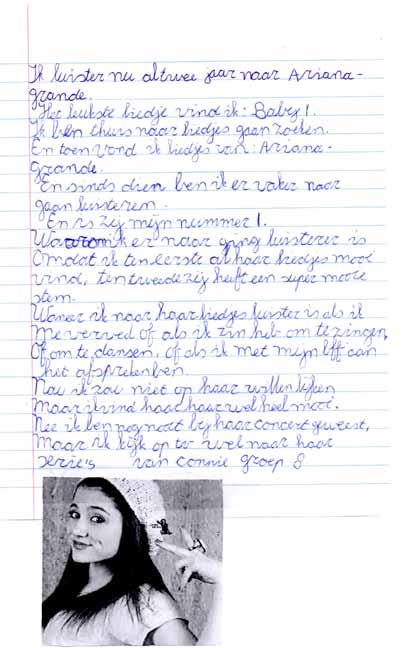 Ik luister nu al twee jaar naar Ariana-
grande.
Het leukste liedje vind ik: Baby I.
Ik ben thuis naar liedjes gaan zoeken.
En toen vond ik liedjes van: Ariana-
grande.
En sinds dien ben ik er vaker naar
gaan luisteren.
En is zij mijn nummer 1.
Waarom ik er naar ging luisteren is
Omdat ik ten eerste al haar liedjes mooi
vind, ten tweede zij heeft een super mooie
stem.
Waneer ik naar haar liedjes luister is als ik
Me verved of als ik zin heb om te zingen,
Of om te dansen, of als ik met mijn bff aan
het afspreken ben.
Nou ik zou niet op haar willen lijken
Maar ik vind haar haar wel heel mooi.
Nee ik ben nog nooit bij haar concert geweest,
Maar ik kijk op tv wel naar haar
serie's van Connie groep 8